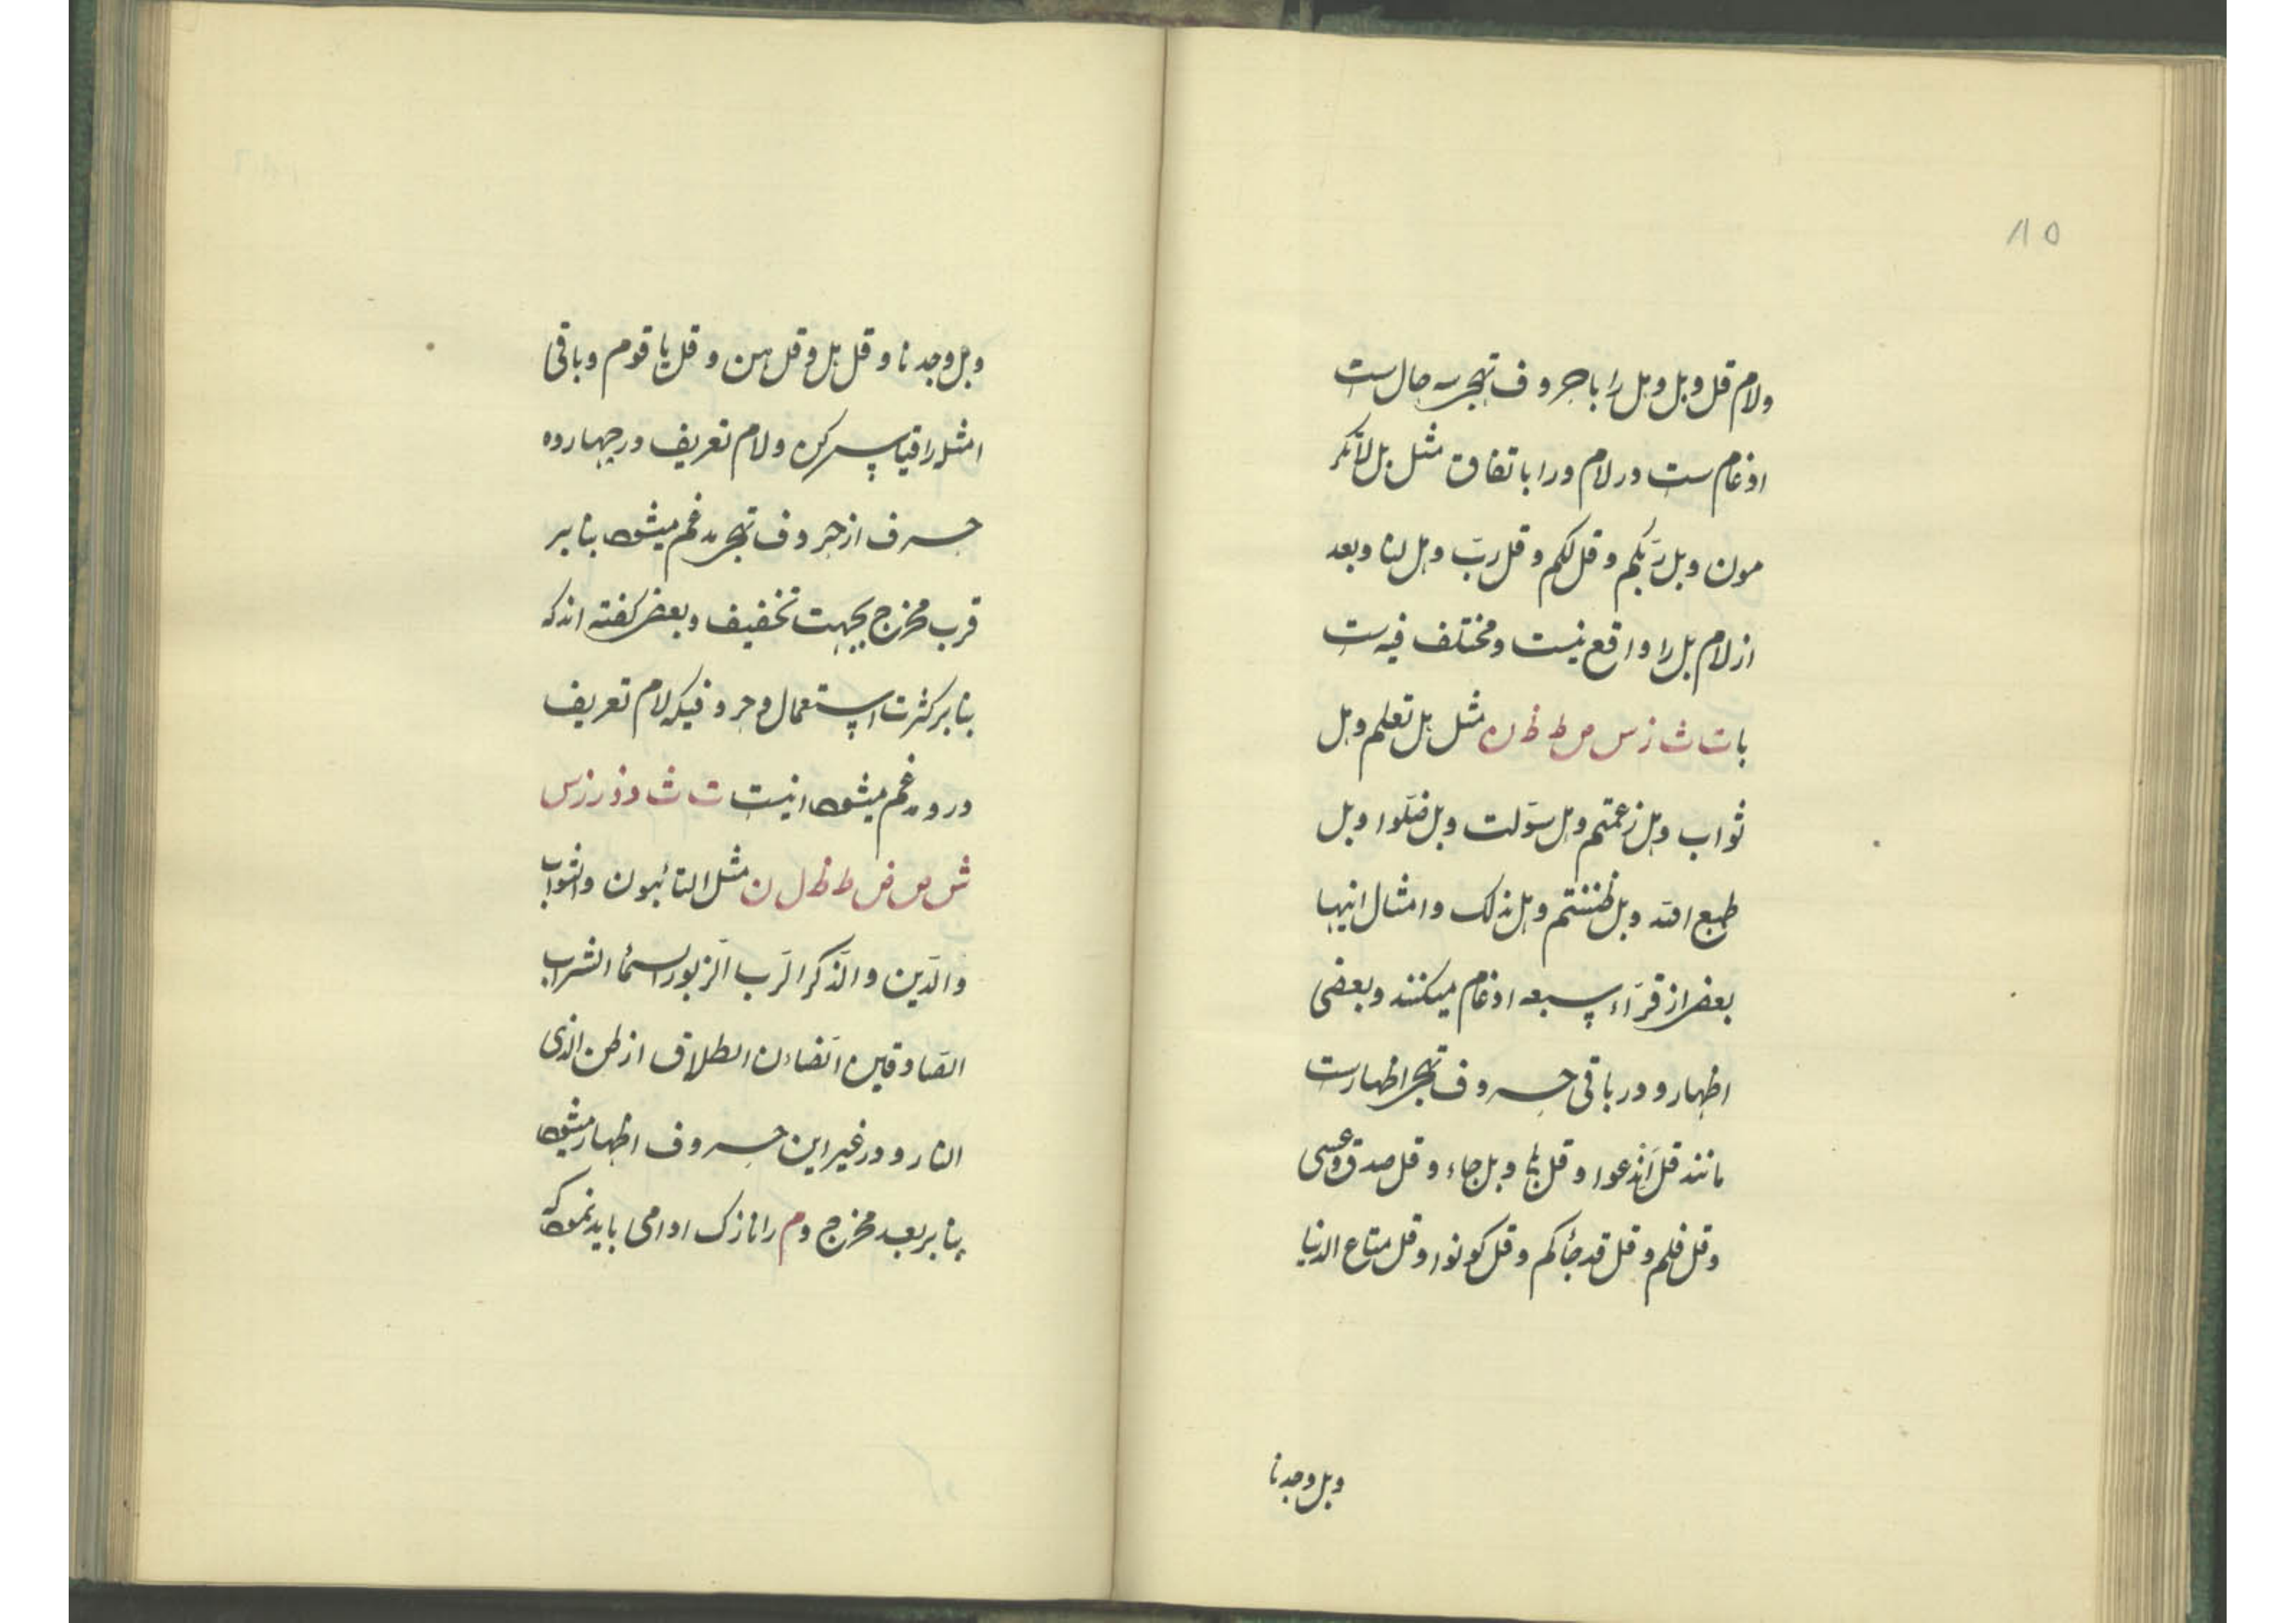 ۸۵
ولام قل وبل وهل را با حروف تهجی سه حالست
ادغامست در لام و را باتفاق مثل بل لا تکر
مون وبل رّبکم وقل لکم وقل ربّ وهل لنا وبعد
از لام بل را واقع نیست ومختلف فیه ست
با ت ث ز س ض ط ظ ن مثل هل تعلم وهل
ثواب وبل زعمتم وبل سوّلت وبل ضلّوا وبل
طبع الله وبل ظننتم وبل نذلک وامثال اینها
بعضی از قرّاء سبعه ادغام میکنند وبعضی
اظهار و در باقی حروف تهجی اظهارست
مانند قل اندعوا وقل وبل جاء وقل صدق وعسی
وقل فلم وقل قد جأکم وقل کونوا وقل متاع الدنیا
وبل وجدنا
وبل وجدنا وقل بل وقل هن وقل یا قوم وباقی
امثله را قیاس کن ولام تعریف در چهارده
حرف از حروف تهجی مدغم میشود بنا بر
قرب مخرج بجهت تخفیف وبعضی کفته اند که
بنا بر کثرت استعمال وحروفیکه لام تعریف
درو مدغم میشود اینست ت ث د ذ ر ز س
ش ص ض ط ظ ل ن مثل التائبون والثواب
والدّین والذّکر الرّب الزّبور السمأ الشراب
الصّادقین الضّان الطلاق از ظن الذی
النار و در غیر این حروف اظهار میشود
بنا بر بعد مخرج و م را نازک ادا می باید نمود که